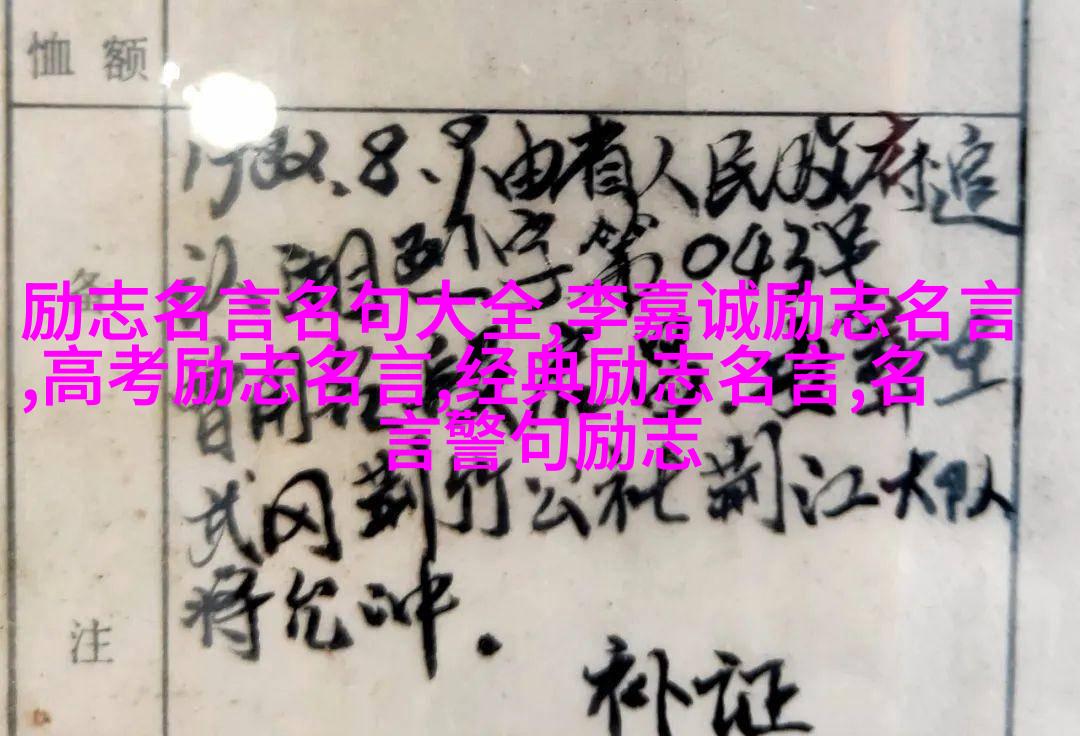 恤额
1982.8.9由省人民政府追
认,湖烈字第043号
备
励志名言名句大全,李嘉诚励志名言
,高考励志名言,经典励志名言,名
言警句励志
武冈荆竹公社荆江大队
将允冲.
注
补证